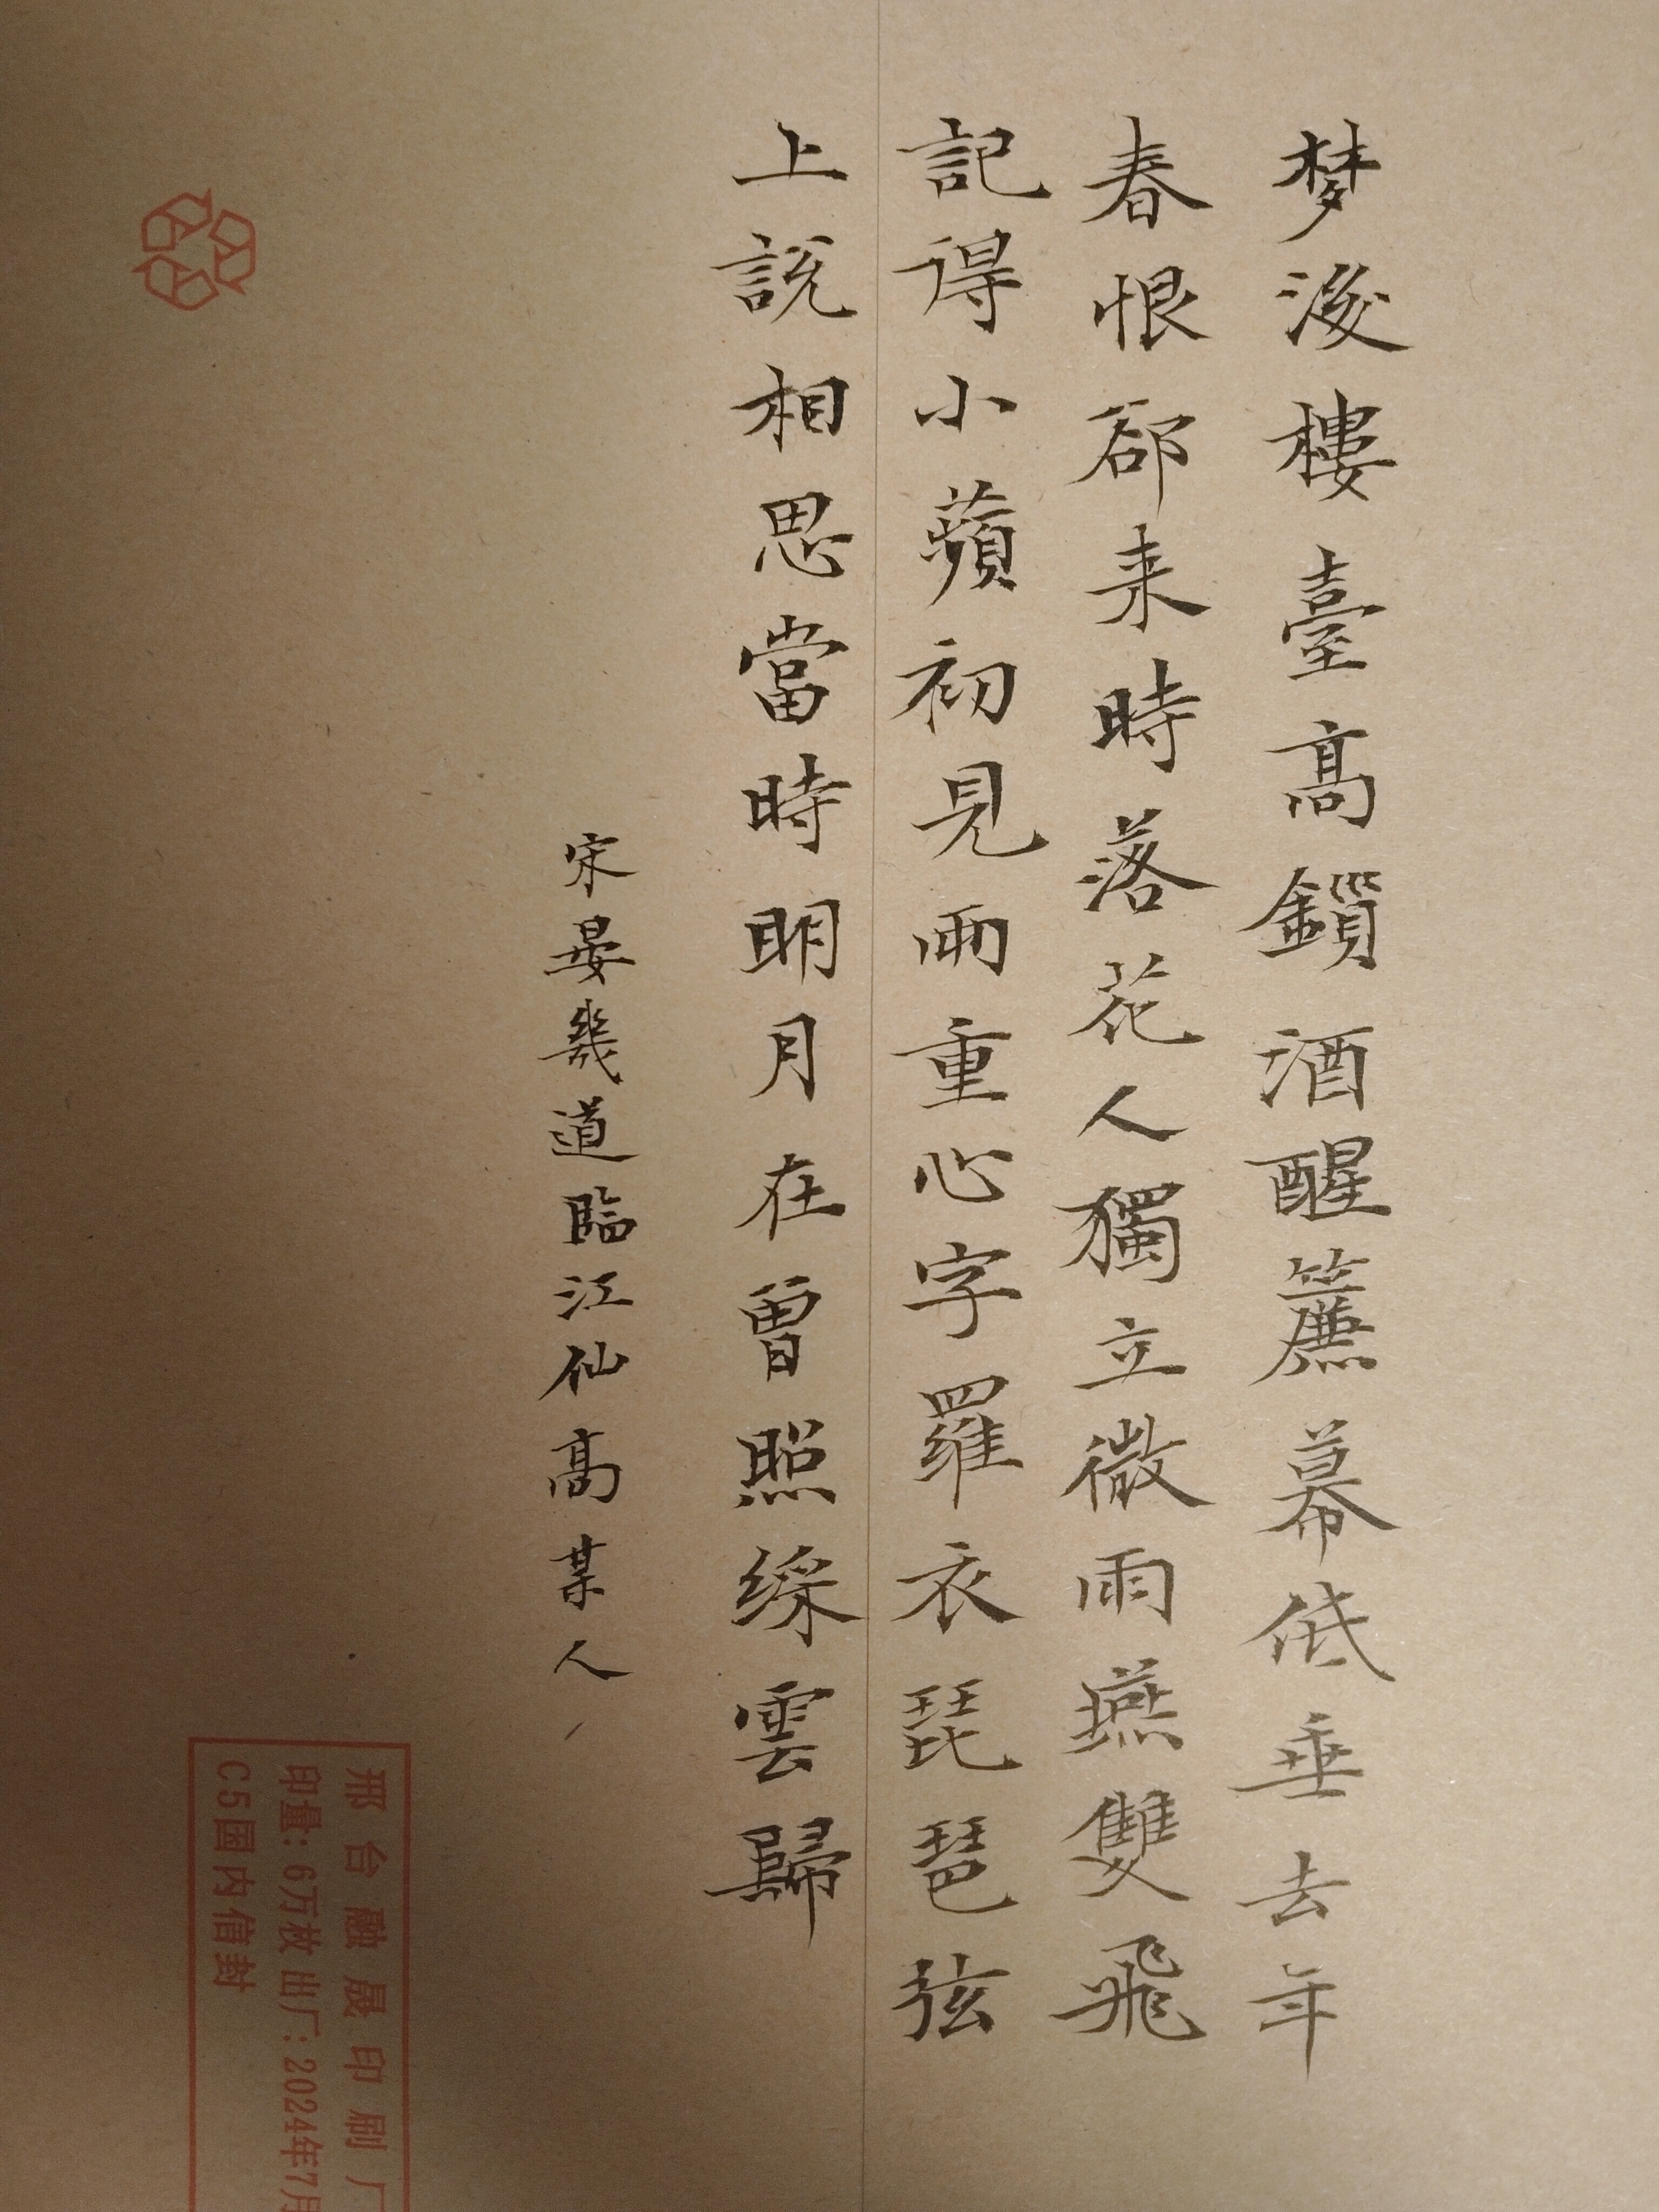 梦後樓臺高鎖酒醒簾幕低垂去年
春恨郤来時落花人獨立微雨燕雙飛
記得小蘋初見兩重心字羅衣琵琶弦
上說相思當時明月在曾照綵雲歸
宋晏幾道臨江仙高某人
邢台融晟印刷厂
印量：6万枚 出厂：2024年7月
C5国内信封